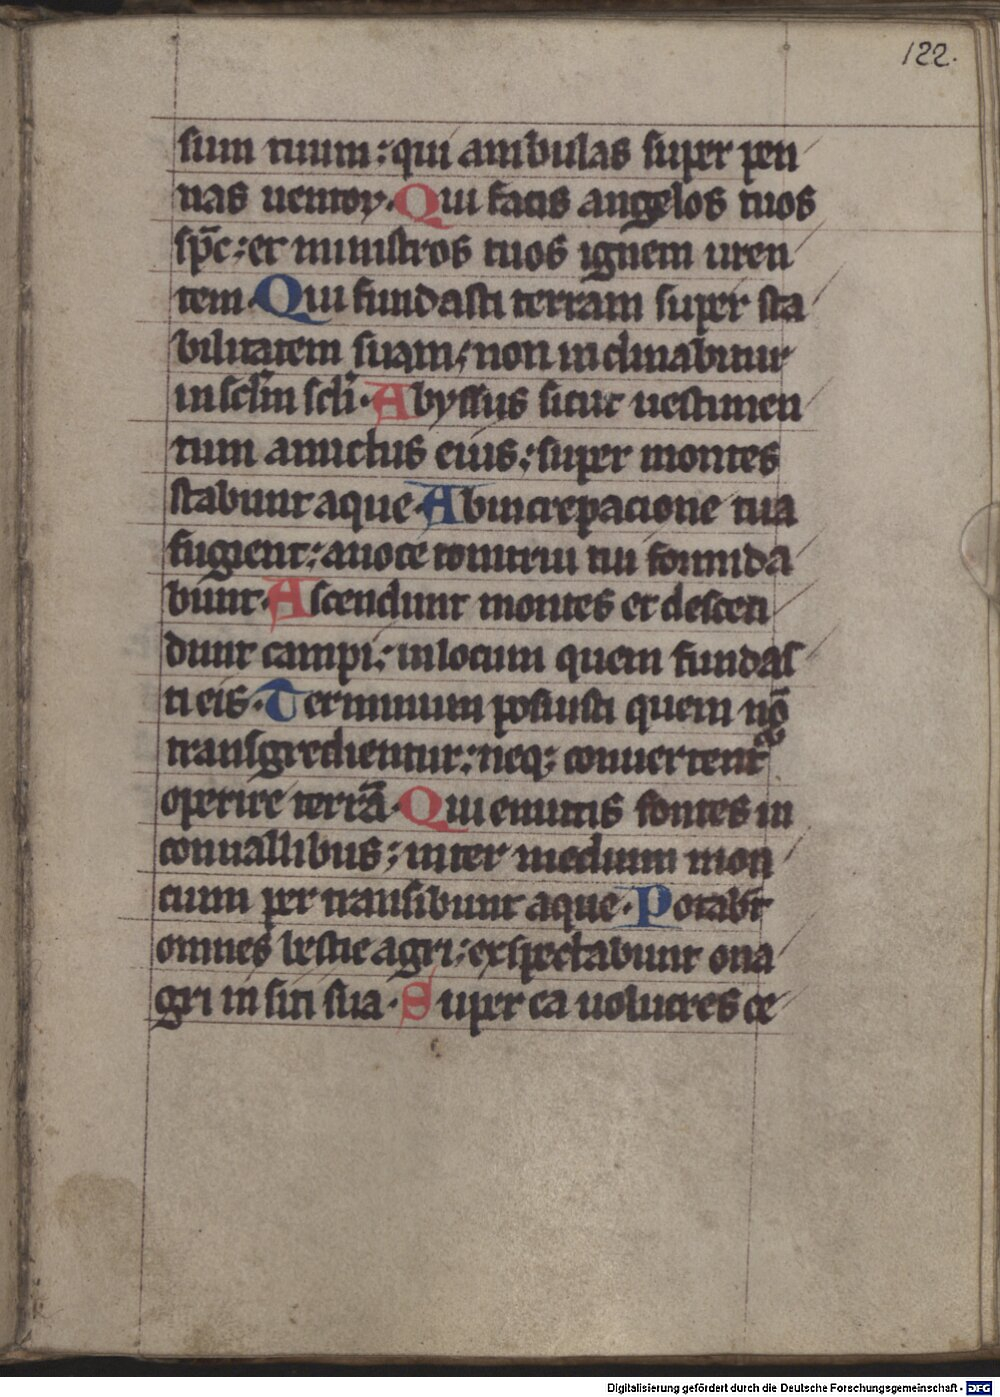 122.
sum tuum: qui ambulas super pen
nas uentoꝝ. Qui facis angelos tuos
sp̄c: et ministros tuos ignem uren
tem. Qui fundasti terram super sta
bilitatem suam: non inclinabitur
in scl̄m scl̄i. Abyssus sicut uestimen
tum amictus eius: super montes
stabunt aque. Ab increpacione tua
fugient: a uoce tonitrui tui formida
bunt. Ascendunt montes et descen
dunt campi: in locum quem fundas
ti eis. Terminum posuisti quem nō
transgredientur: neqꝫ conuertent᷑
operire terrā. Qui emittis fontes in
conuallibus: inter medium mon
cium per transibunt aque. Potab̄t
omnes bestie agri: exspectabunt ona
gri in siti sua. Super ea uolucres ce
Digitalisierung gefördert durch die Deutsche Forschungsgemeinschaft - DFG